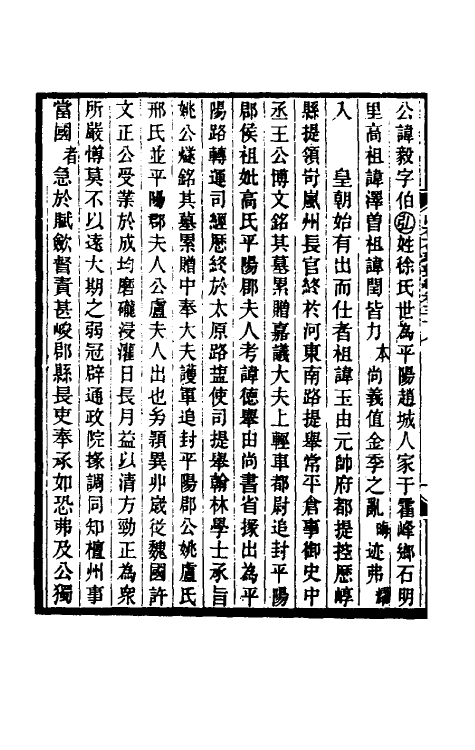 公諱毅字伯弘姓徐氏世為平陽趙城人家于霍峰鄉石明
里高祖諱澤曾祖諱閏皆力本尚義值金季之亂晦迹弗耀
入　皇朝始有出而仕者祖諱玉由元帥府都提控歷崞
縣提領岢嵐州長官終於河東南路提舉常平倉事御史中
丞王公博文銘其墓累贈嘉議大夫上輕車都尉追封平陽
郡侯祖妣高氏平陽郡夫人考諱德舉由尚書省掾出為平
陽路轉運司經歷終於太原路鹽使司提舉翰林學士承旨
姚公燧銘其墓累贈中奉大夫護軍追封平陽郡公妣盧氏
邢氏並平陽郡夫人公盧夫人出也劣穎異丱歲從魏國許
文正公受業於成均磨礲浸灌日長月益以清方勁正為衆
所嚴憚莫不以遠大期之弱冠辟通政院掾調同知檀州事
當國者急於賦斂督責甚峻郡縣長吏奉承如恐弗及公獨